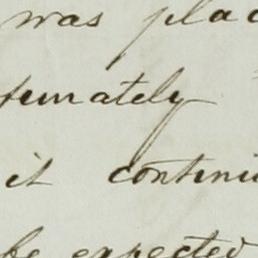 was plac
tunately
it continu
be expected